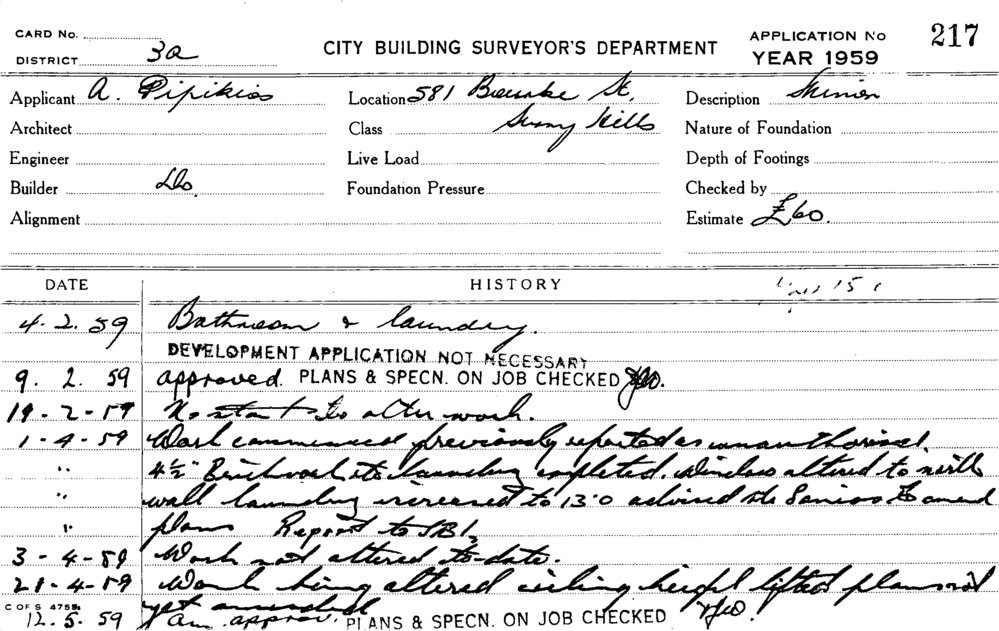 CARD No.
DISTRICT 3a
CITY BUILDING SURVEYOR'S DEPARTMENT
APPLICATION No 217
YEAR 1959
Applicant A. Pipikios
Location 581 Bourke St.
Description
Architect
Class Surry Hills
Nature of Foundation
Engineer
Live Load
Depth of Footings
Builder Do.
Foundation Pressure
Checked by
Alignment
Estimate £60.
DATE HISTORY
4. 2. 59 Bathroom & laundry.
DEVELOPMENT APPLICATION NOT NECESSARY
9. 2. 59 approved. PLANS & SPECN. ON JOB CHECKED
19-2-59 No start to alter work.
1-4-59 Work commenced previously reported as unauthorised.
" 4½" Brickwork to laundry completed. Window altered to north
" wall laundry increased to 13'0 advised to amend
" plans Report to SBI,
3-4-59 Work not altered to-date.
21-4-59 Work being altered ceiling height lifted plans not
C OF S 4758 yet amended
12. 5. 59 Am. approv. PLANS & SPECN. ON JOB CHECKED